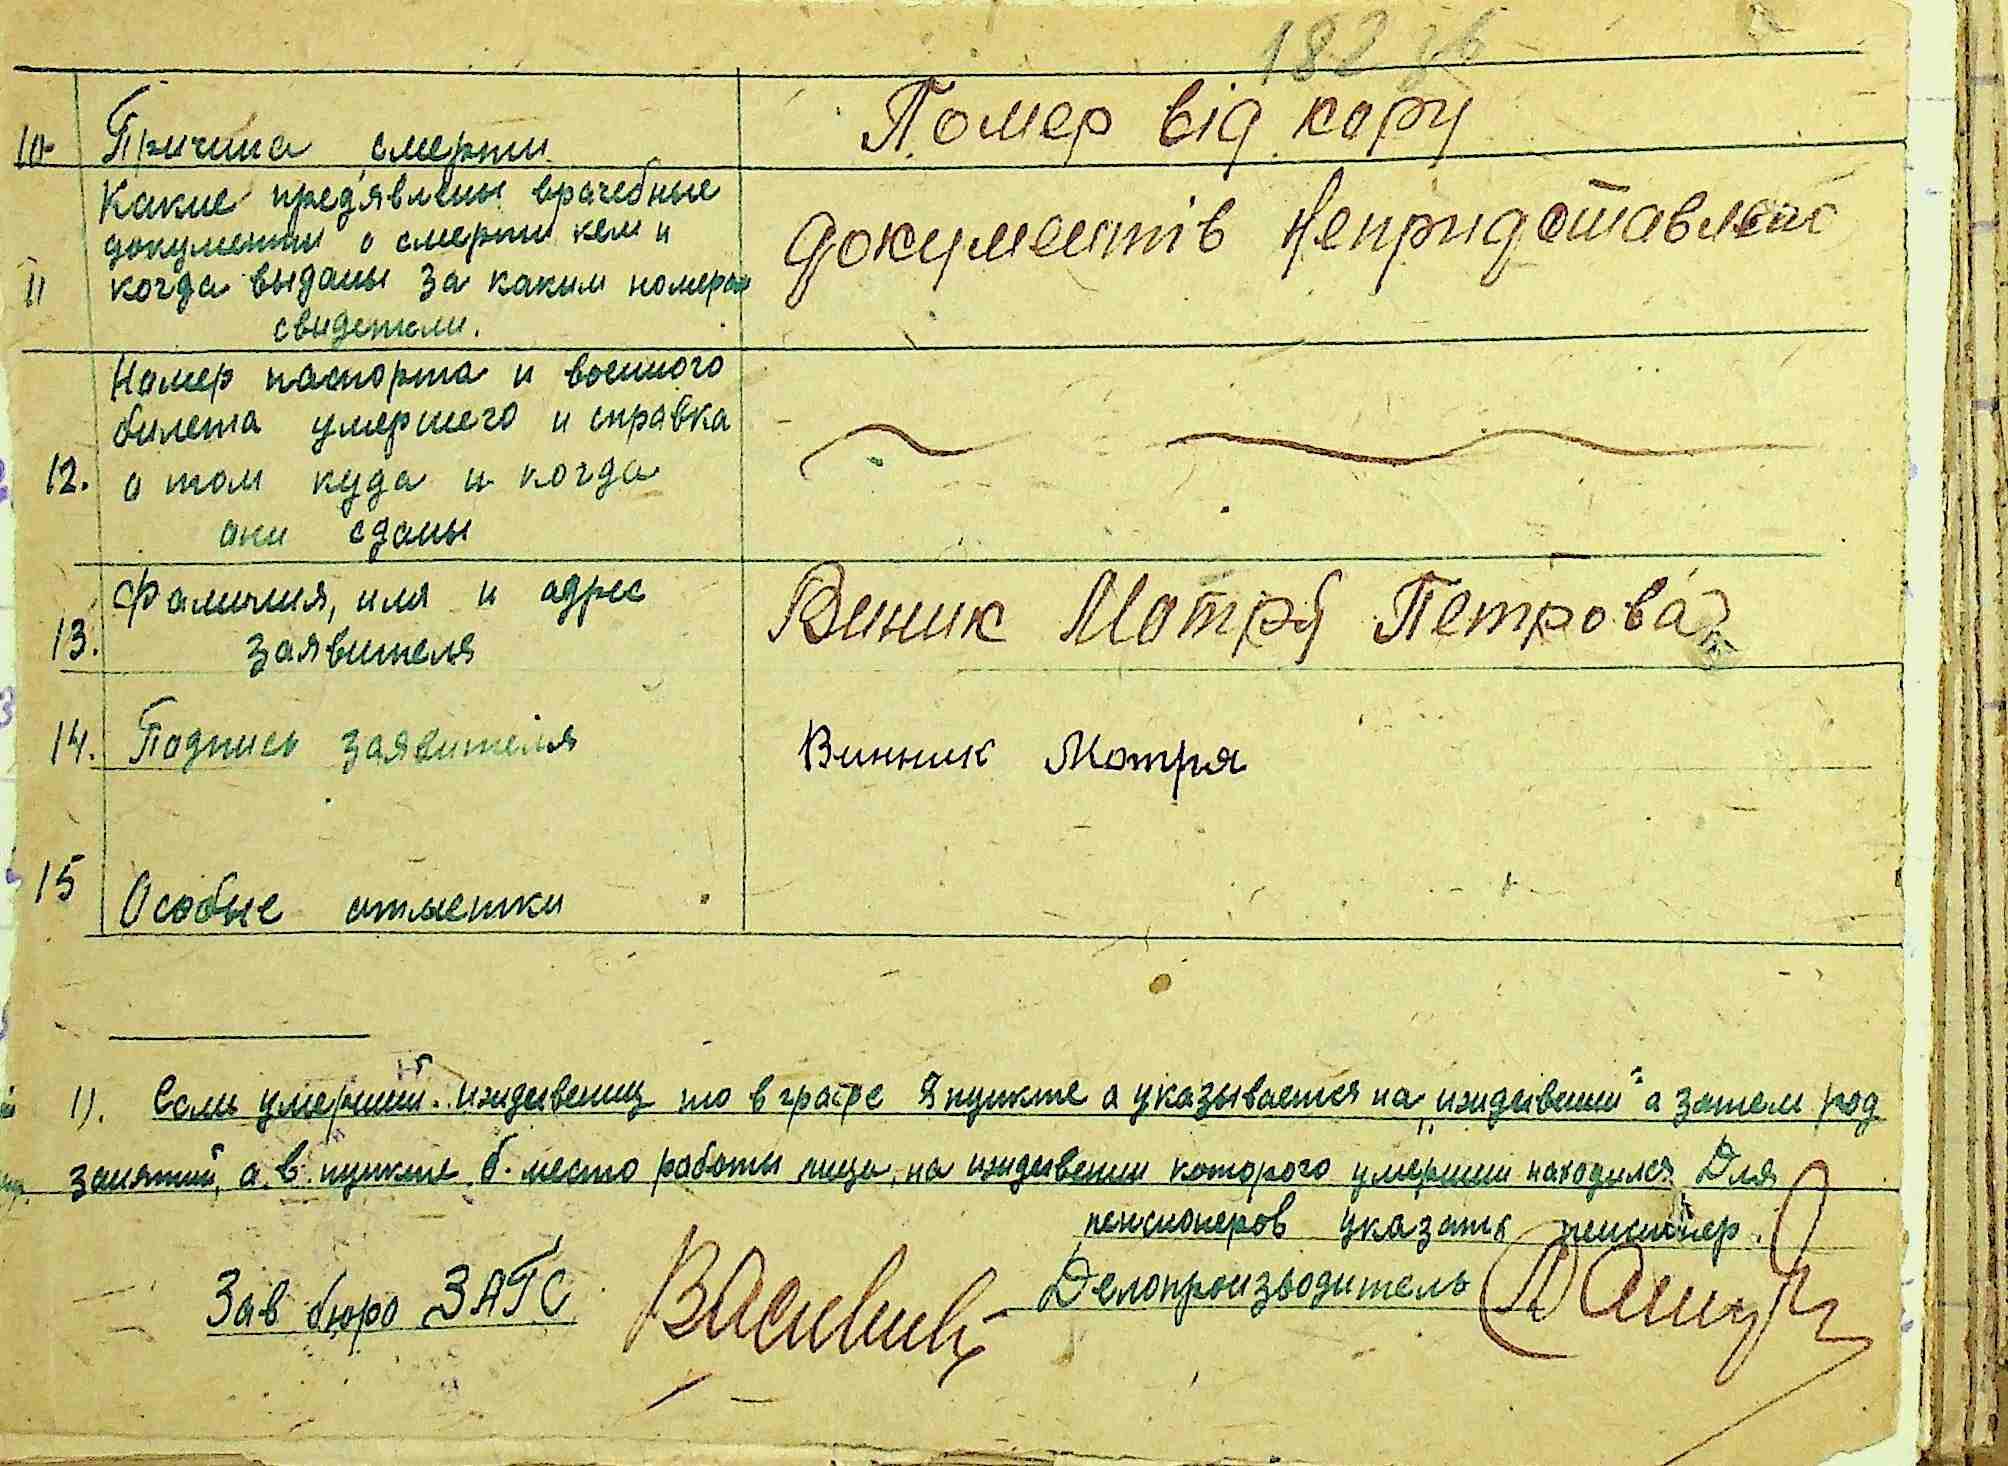 182 зв
10 Причина смерти Помер від кору
Какие пред'явлены врачебные
документы о смерти кем и
11 когда выданы за каким номером
свидетели.
документів непридставлено
Номер паспорта и военного
билета умершего и справка
12. о том куда и когда
они сданы
Фамилия, имя и адрес
13. заявителя
Виник Мотря Петрова
14. Подпись заявителя Винник Мотря
15 Особые отметки
1). Если умерший иждивенец то в графе 9 пункте а указывается на „иждивении" а затем род
занятий, а в пункте б. место работы лица, на иждивении которого умерший находился. Для
пенсионеров указать пенсионер.
Зав бюро ЗАГС Делопроизводитель